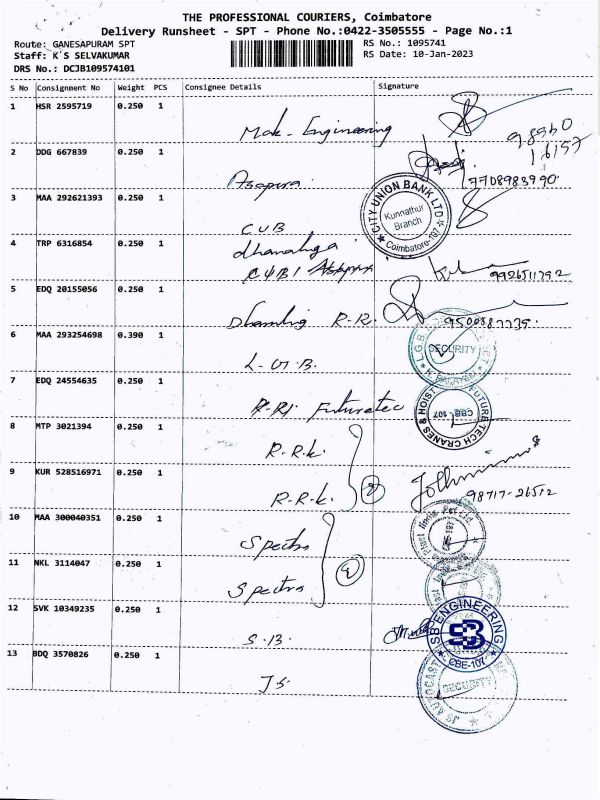 THE PROFESSIONAL COURIERS, Coimbatore
Delivery Runsheet - SPT - Phone No.:0422-3505555 - Page No.:1
Route: GANESAPURAM SPT
RS No.: 1095741
Staff: K S SELVAKUMAR
RS Date: 10-Jan-2023
DRS No.: DCJB109574101
S No Consignment No Weight PCS Consignee Details Signature
1 HSR 2595719 0.250 1
Mak - Engineering
2 DDG 667839 0.250 1
7708983990
3 MAA 292621393 0.250 1
CUB
CITY UNION BANK LTD
Kunnathur
Branch
Coimbatore-107
4 TRP 6316854 0.250 1
5 EDQ 20155056 0.250 1
R.R.
6 MAA 293254698 0.390 1
SECURITY
7 EDQ 24554635 0.250 1
Futuretec
FUTURE TECH CRANES & HOIST
CBE-107
8 MTP 3021394 0.250 1
R.R.k.
9 KUR 528516971 0.250 1
R.R.k.
2
98717-26512
10 MAA 300040351 0.250 1
Spectro
11 NKL 3114047 0.250 1
Spectro
2
12 SVK 10349235 0.250 1
S.B.
SB ENGINEERING
SB
CBE-107
13 BDQ 3570826 0.250 1
JS.
SECURITY